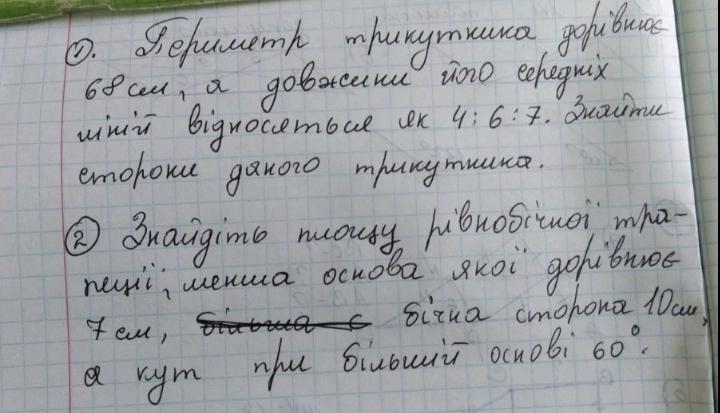 ①. Периметр трикутника дорівнює
68 см, а довжини його середніх
ліній відносяться як 4:6:7. Знайти
сторони даного трикутника.
② Знайдіть площу рівнобічної тра-
пеції, менша основа якої дорівнює
7 см, більша с бічна сторона 10 см,
а кут при більшій основі 60°.